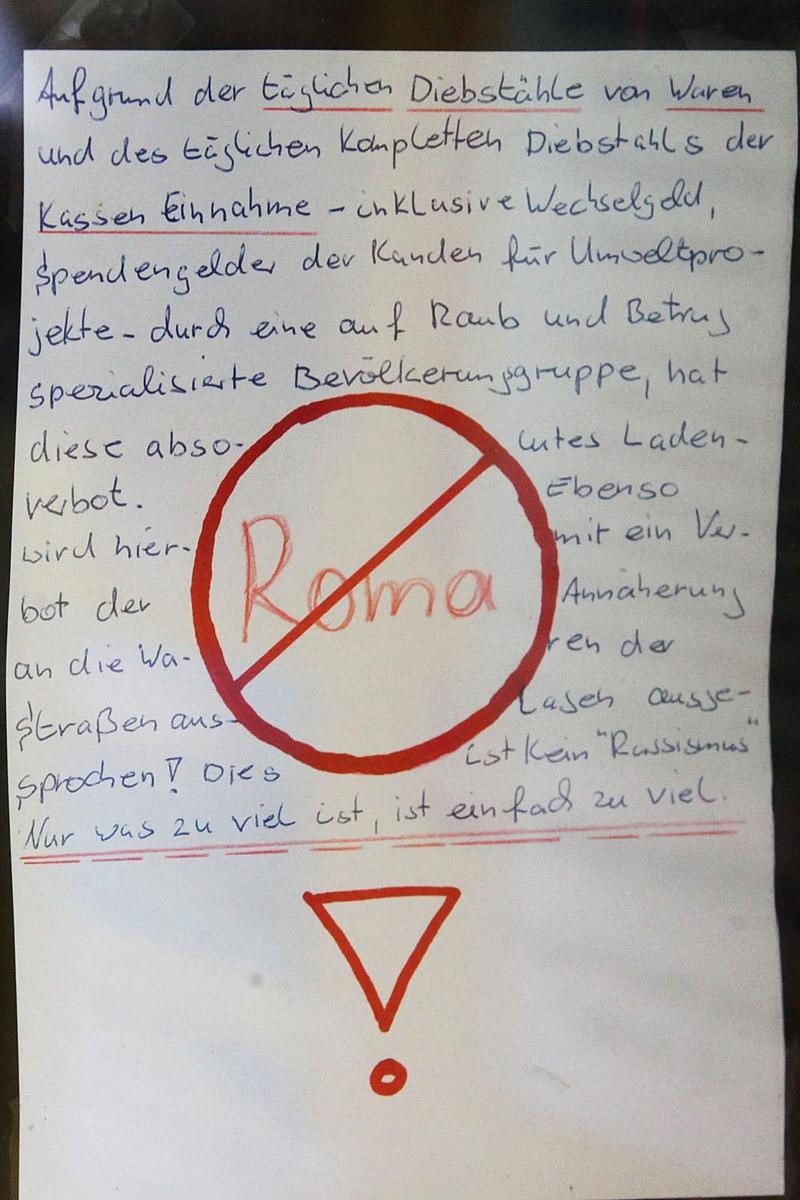 Aufgrund der täglichen Diebstähle von Waren
und des täglichen kompletten Diebstahls der
Kassen Einnahme - inklusive Wechselgeld,
Spendengelder der Kunden für Umweltpro-
jekte - durch eine auf Raub und Betrug
spezialisierte Bevölkerungsgruppe, hat
diese abso- lutes Laden-
verbot. Ebenso
wird hier- mit ein Ver-
bot der Annäherung
an die Wa- ren der
Straßen aus- lagen ausge-
sprochen! Dies ist kein "Rassismus"
Nur was zu viel ist, ist einfach zu viel.
Roma
!